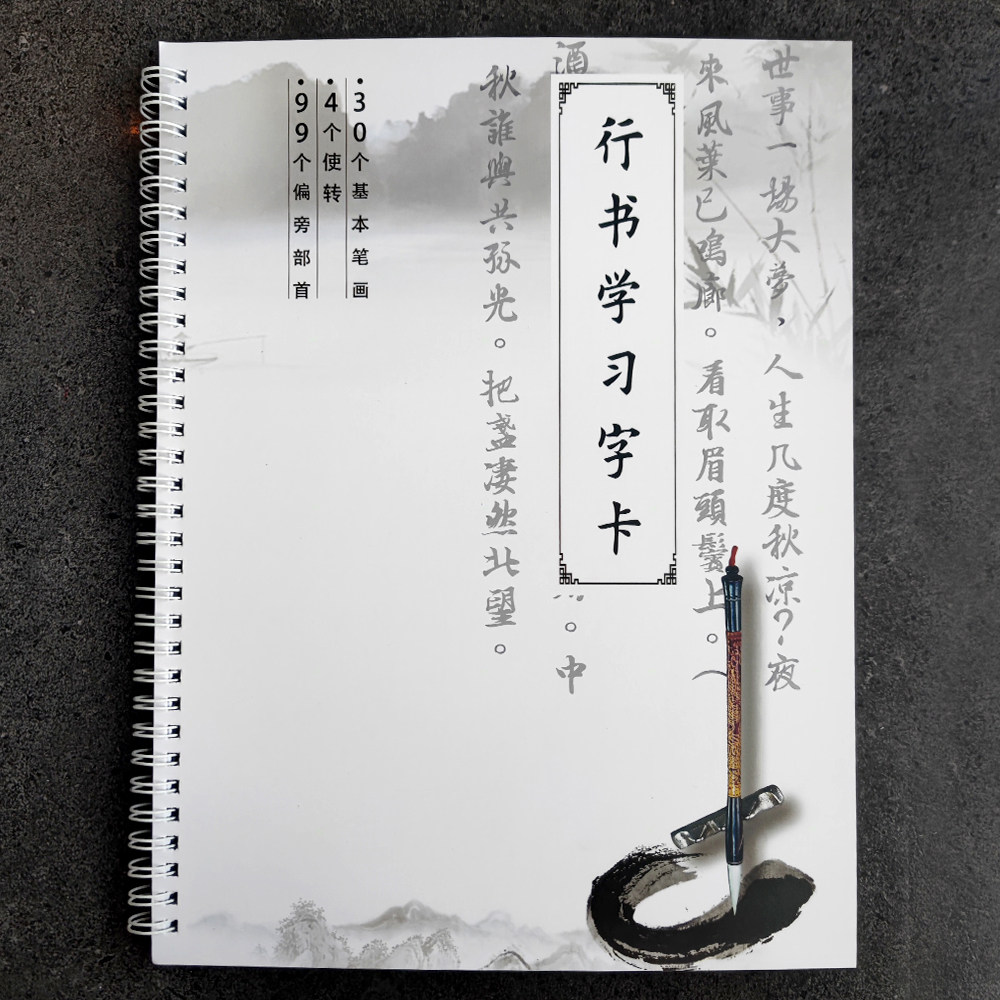 世事一场大夢，人生几度秋凉？夜
來風葉已鳴廊。看取眉頭鬓上。
行书学习字卡
酒
。中
秋誰與共孤光。把盏凄然北望。
·30个基本笔画
·4个使转
·99个偏旁部首